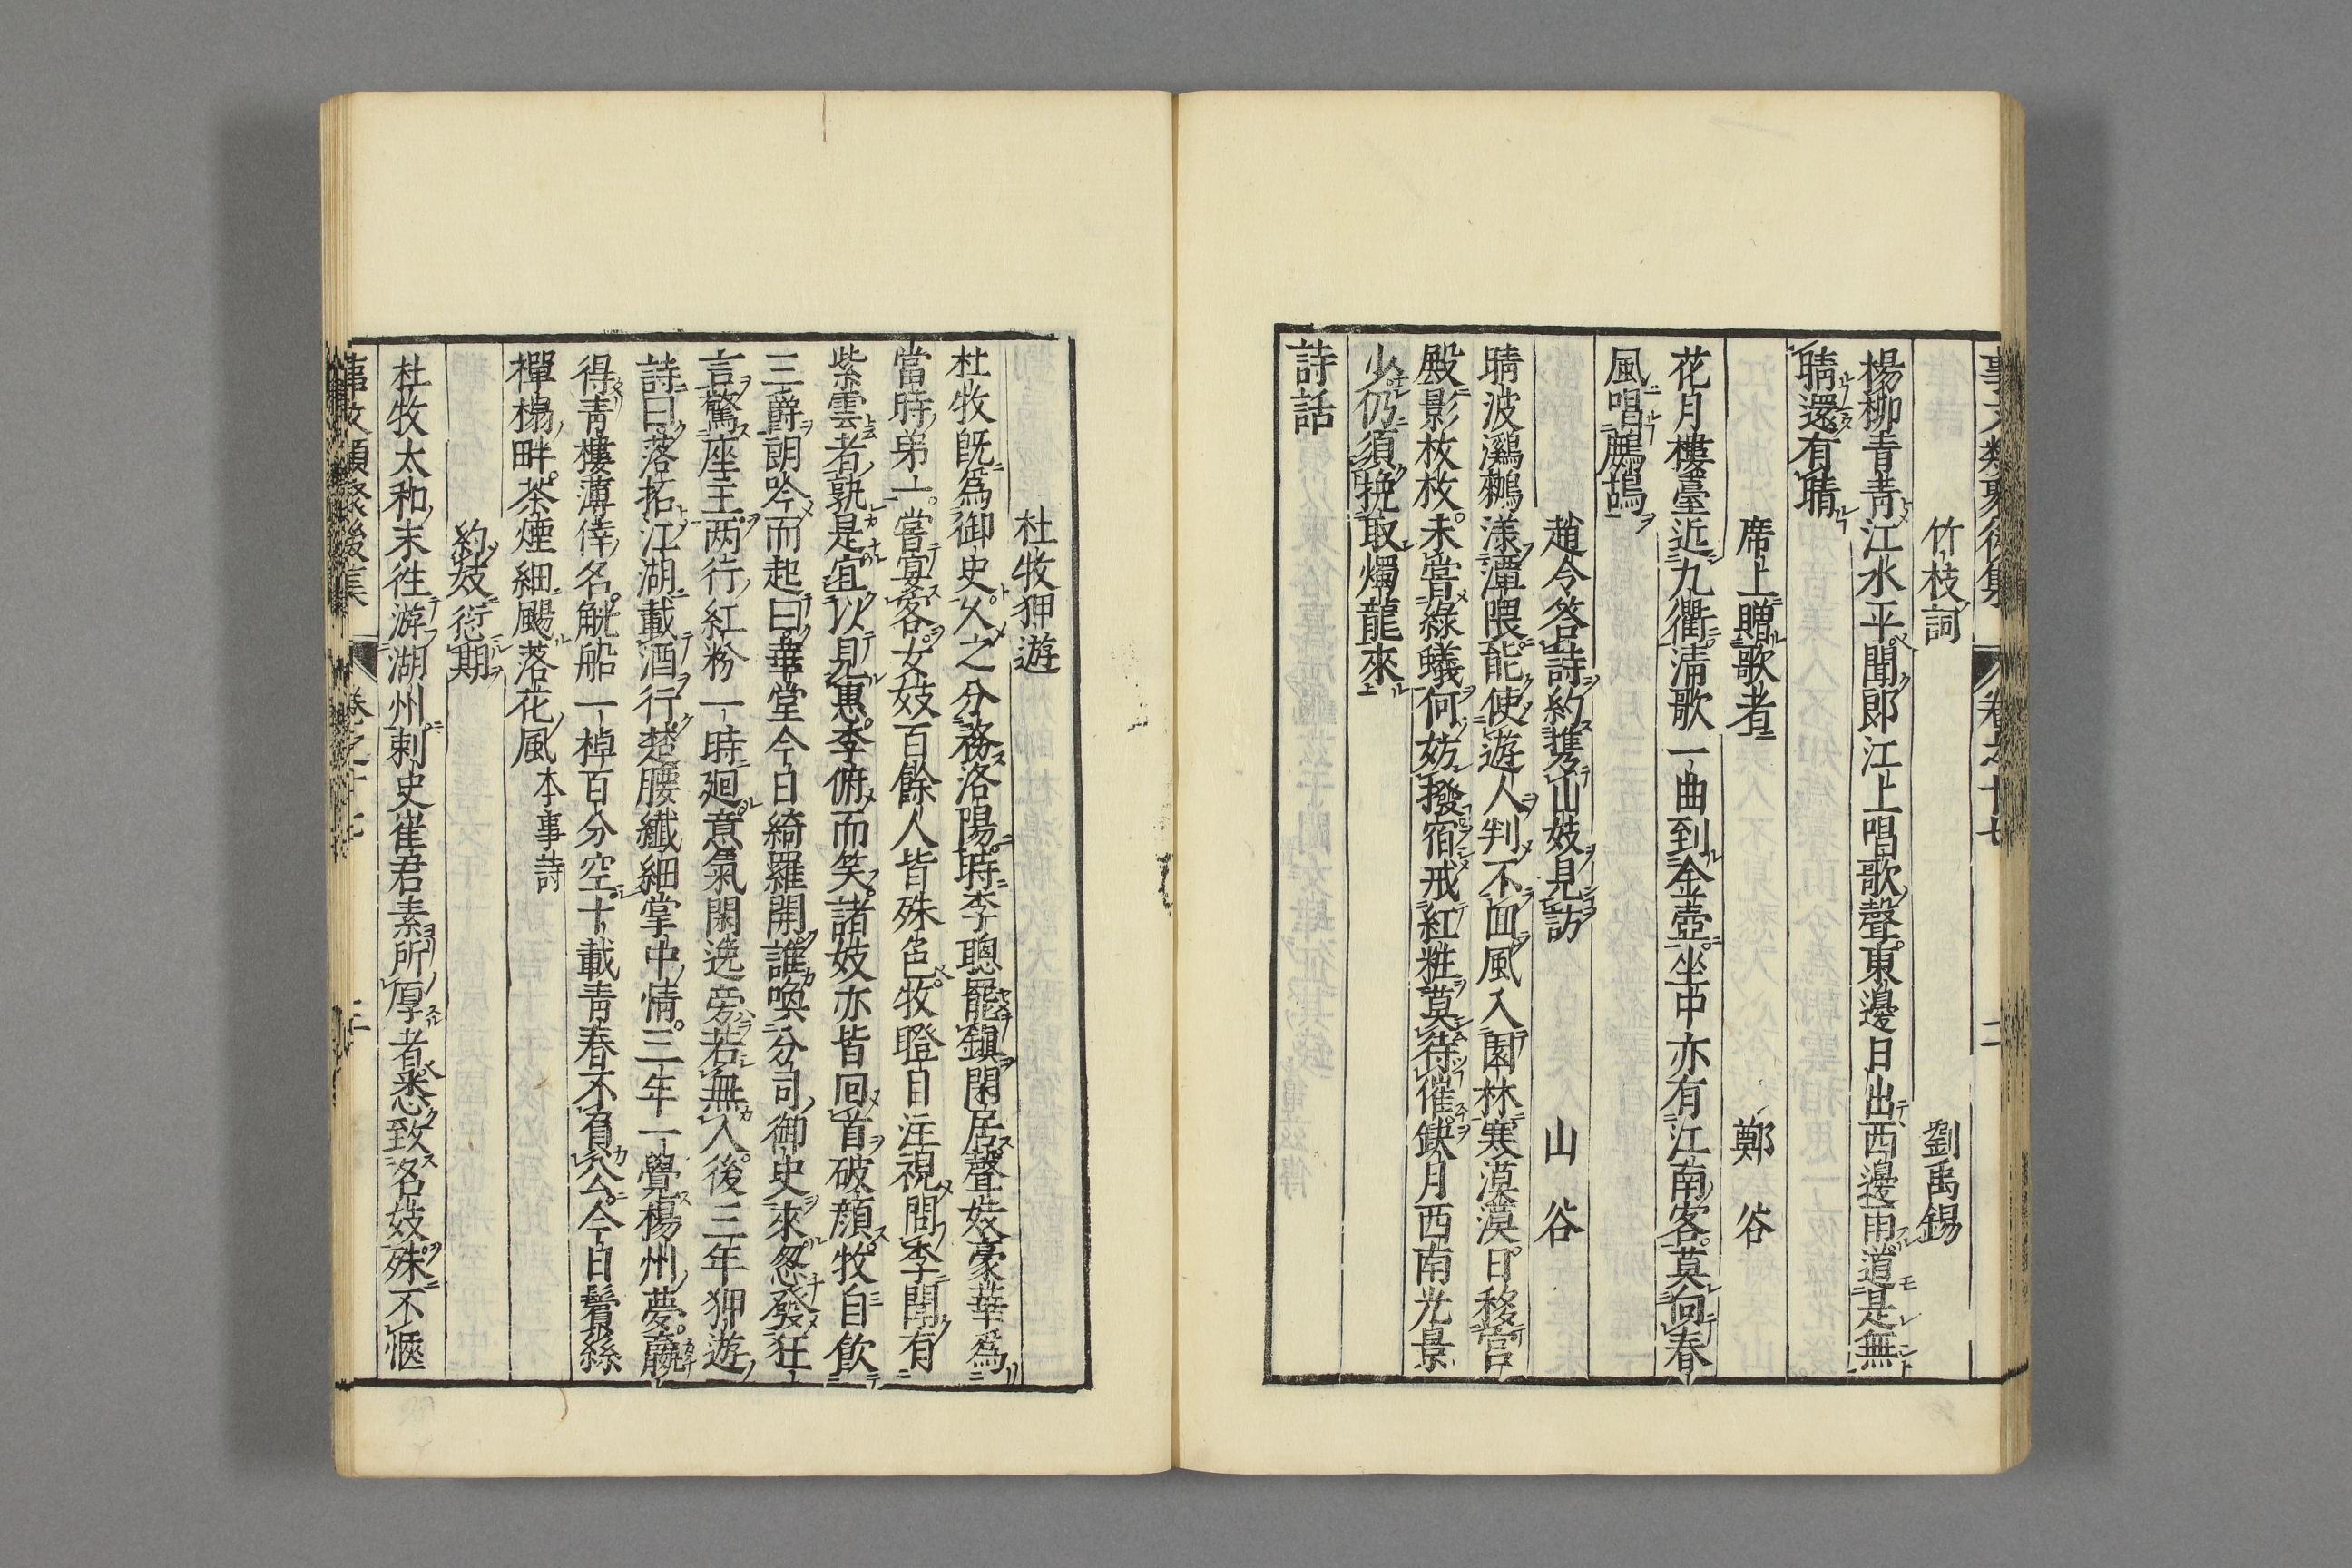 事文類聚後集 卷之十七 二
竹枝詞 劉禹錫
楊柳青青江水平聞郎江上唱歌聲東邊日出西邊雨道是無
晴還有晴
席上贈歌者 鄭谷
花月樓臺近九衢清歌一曲到金壺坐中亦有江南客莫向春
風唱鷓鴣
趙令答詩約携山妓見訪 山谷
晴波鸂鶒漾潭隈能使遊人判不回風入園林寒漠漠日移宮
殿影枚枚未嘗綠蟻何妨撥宿戒紅粧莫待催缺月西南光景
少仍須挽取燭龍來
詩話
杜牧狎遊
杜牧既爲御史久之分務洛陽時李聰罷鎮閑居聲妓豪華爲
當時弟一嘗宴客女妓百餘人皆殊色牧瞪目注視問李聞有
紫雲者孰是宜以見惠李俯而笑諸妓亦皆回首破顔牧自飲
三爵朗吟而起曰華堂今日綺羅開誰喚分司御史來忽發狂
言驚座主两行紅粉一時廻意氣閑逸旁若無人後三年狎遊
詩曰落拓江湖載酒行楚腰纖細掌中情三年一覺楊州夢贏
得青樓薄倖名觥船一棹百分空十載青春不負公今日鬢絲
禪榻畔茶煙細颺落花風 本事詩
約妓愆期
杜牧太和末徃游湖州刺史崔君素所厚者悉致名妓殊不愜
事文類聚後集 卷之十七 三